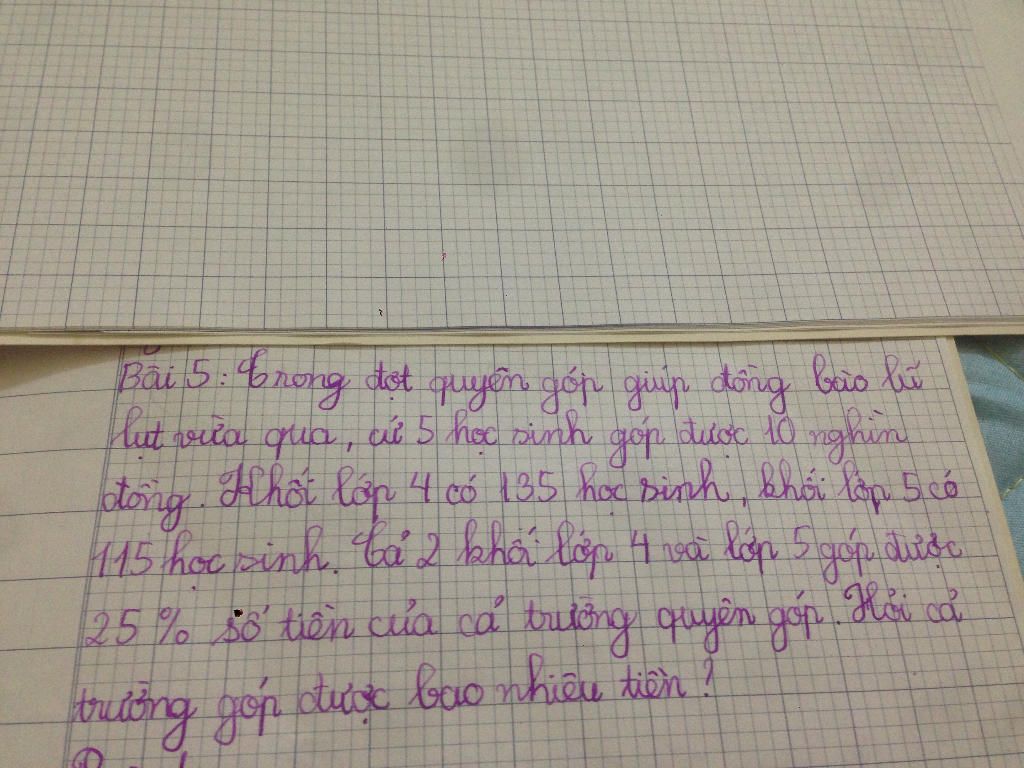 Bài 5: Trong đợt quyên góp giúp đồng bào lũ
lụt vừa qua, cứ 5 học sinh góp được 10 nghìn
đồng. Khối lớp 4 có 135 học sinh, khối lớp 5 có
115 học sinh. Cả 2 khối lớp 4 và lớp 5 góp được
25% số tiền của cả trường quyên góp. Hỏi cả
trường góp được bao nhiêu tiền?